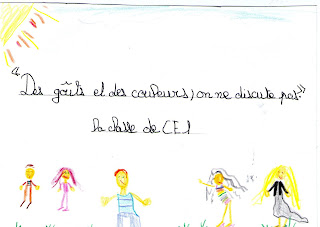 "Des goûts et des couleurs, on ne discute pas."
la classe de CE1